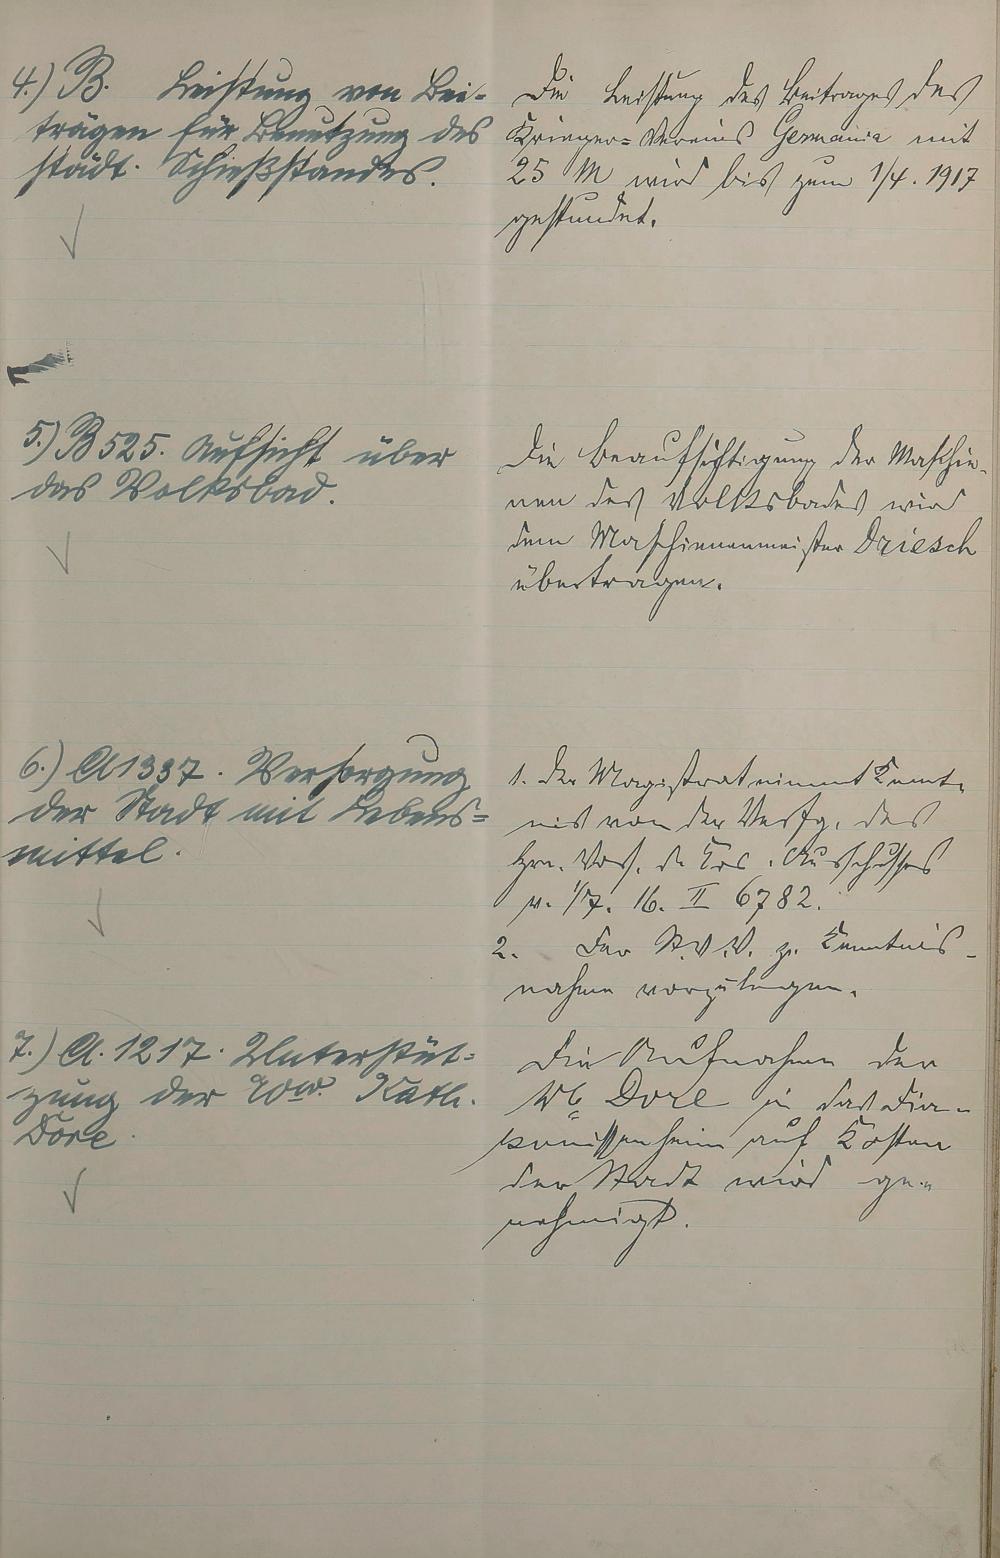 4.) B. Leistung von Bei-
trägen für Benutzung des
städt. Schießstandes.
Die Leistung des Beitrages des
Krieger-Vereins Germania mit
25 M wird bis zum 1/4. 1917
gestundet.
5.) B 525. Aufsicht über
das Volksbad.
Die Beaufsichtigung der Maschie-
nen des Volksbades wird
dem Maschienenmeister Driesch
übertragen.
6.) A 1337. Versorgung
der Stadt mit Lebens-
mittel.
1. Der Magistrat nimmt Kennt-
nis von der Verfg. des
Hrn. Vors. d. Krs. Ausschusses
v. 1/7. 16. II 6782.
2. Der St.V.V. z. Kenntnis-
nahme vorzulegen.
7.) A. 1217. Unterstüt-
zung der Wwe. Kath.
Dore.
Die Aufnahme der
Ww. Dore in das Dia-
konissenheim auf Kosten
der Stadt wird ge-
nehmigt.